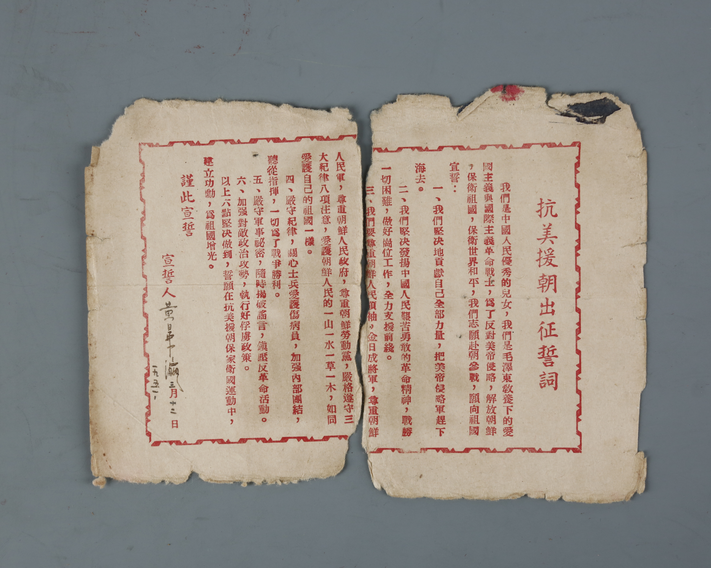 抗美援朝出征誓詞
我們是中國人民優秀的兒女，我們是毛澤東教養下的愛
國主義與國際主義革命戰士，爲了反對美帝侵略，解放朝鮮
，保衛祖國，保衛世界和平，我們志願赴朝參戰，願向祖國
宣誓：
一、我們堅決地貢獻自己全部力量，把美帝侵略軍趕下
海去。
二、我們堅決發揚中國人民堅苦勇敢的革命精神，戰勝
一切困難，做好崗位工作，全力支援前綫。
三、我們要尊重朝鮮人民領袖。金日成將軍，尊重朝鮮
人民軍，尊重朝鮮人民政府，尊重朝鮮勞動黨，嚴格遵守三
大紀律八項注意，愛護朝鮮人民的一山一水一草一木，如同
愛護自己的祖國一樣。
四、嚴守紀律，關心士兵愛護傷病員，加强內部團結，
聽從指揮，一切爲了戰爭勝利。
五、嚴守軍事秘密，隨時揭破謠言，鎮壓反革命活動。
六、加强對敵政治攻勢，執行好俘虜政策。
以上六點堅決做到，誓願在抗美援朝保家衛國運動中，
建立功勳，爲祖國增光。
謹此宣誓
宣誓人
一九五一 三月十二日